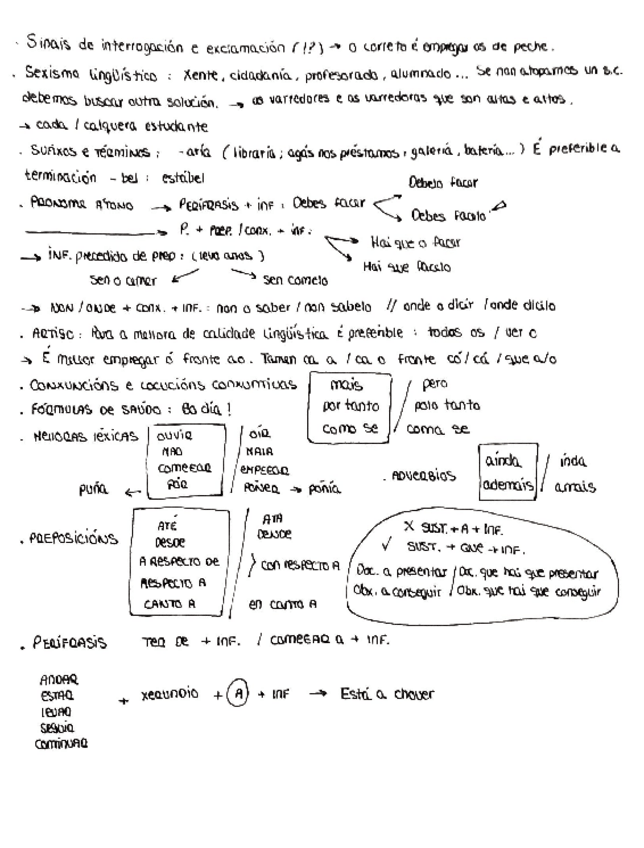 · Sinais de interrogación e exclamación (!?) → o correto é empregar os de peche.
. Sexismo lingüístico : Xente, cidadanía, profesorado, alumnado... Se non atopamos un s.c.
debemos buscar outra solución. → os varredores e as varredoras que son altas e altos.
→ cada / calquera estudante
. Sufixos e Términos : -aría ( libraría; agás nos préstamos: galería, batería...) É preferible a
terminación -bel : estábel
. PRONOME ÁTONO → PERÍFRASIS + inf : Debes facer
Debelo facer
Debes facelo
P. + PREP. / conx. + inf.
Hai que o facer
Hai que facelo
→ INF. precedido de prep : ( leva anos )
sen o comer
sen comelo
→ NON / ONDE + CONX. + INF. : non o saber / non sabelo // onde o dicir / onde dicilo
. ARTIGO : Para a mellora de calidade lingüística é preferible : todos os / ver o
→ É mellor empregar ó fronte ao. Tamén ca a / ca o fronte có/cá / que a/o
. CONXUNCIÓNS e LOCUCIÓNS CONXUNTIVAS
mais / pero
por tanto / polo tanto
como se / coma se
. FÓRMULAS DE SAÚDO : Bo día !
. MELLORAS LÉXICAS
ouvir / oír
MAO / MAIA
COMEZAR / EMPEZAR
puña ← PÓR / POÑER → poñía
. ADVERBIOS
aínda / inda
ademais / amais
. PREPOSICIÓNS
ATÉ / ATA
DESDE / DENDE
A RESPECTO DE
RESPECTO A
} con respecto A
CANTO A / en canto A
X SUST. + A + INF.
✓ SUST. + QUE + INF.
Doc. a presentar / Doc. que hai que presentar
Obx. a conseguir / Obx. que hai que conseguir
. PERÍFRASIS TER DE + INF. / COMEZAR A + INF.
ANDAR
ESTAR
LEVAR
SEGUIR
CONTINUAR
+ xerundio + (A) + INF → Está a chover